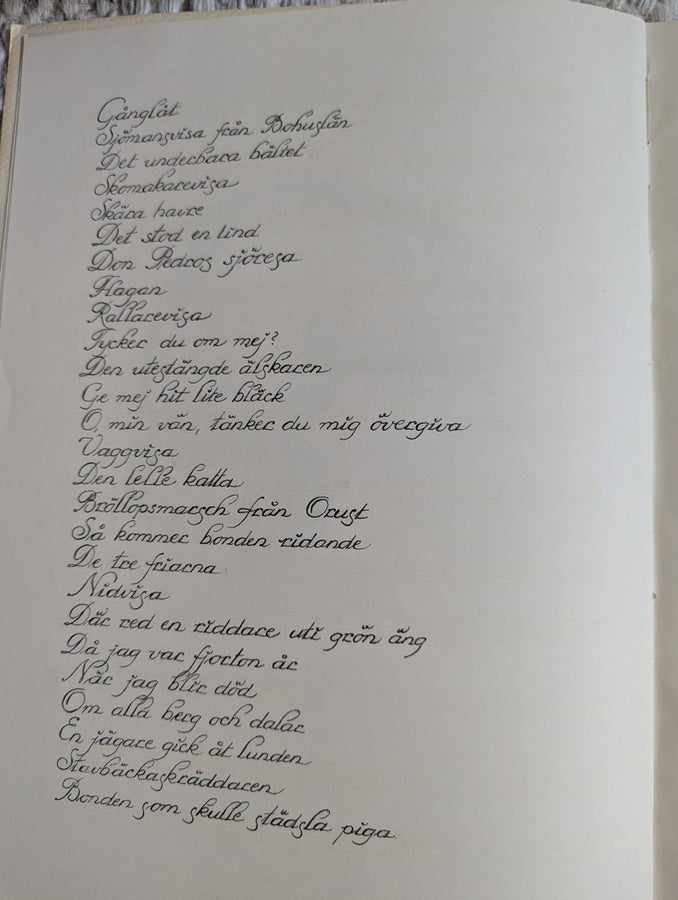 Gånglåt
Sjömansvisa från Bohuslän
Det underbara bältet
Skomakarevisa
Skära havre
Det stod en lind
Don Pedros sjöresa
Hagan
Rallarevisa
Tycker du om mej?
Den utestängde älskaren
Ge mej hit lite bläck
O, min vän, tänker du mig övergiva
Vaggvisa
Den lelle katta
Bröllopsmarsch från Orust
Så kommer bonden ridande
De tre friarna
Nidvisa
Där red en riddare uti grön äng
Då jag var fjorton år
När jag blir död
Om alla berg och dalar
En jägare gick åt lunden
Stavbäckaskräddaren
Bonden som skulle städsla piga